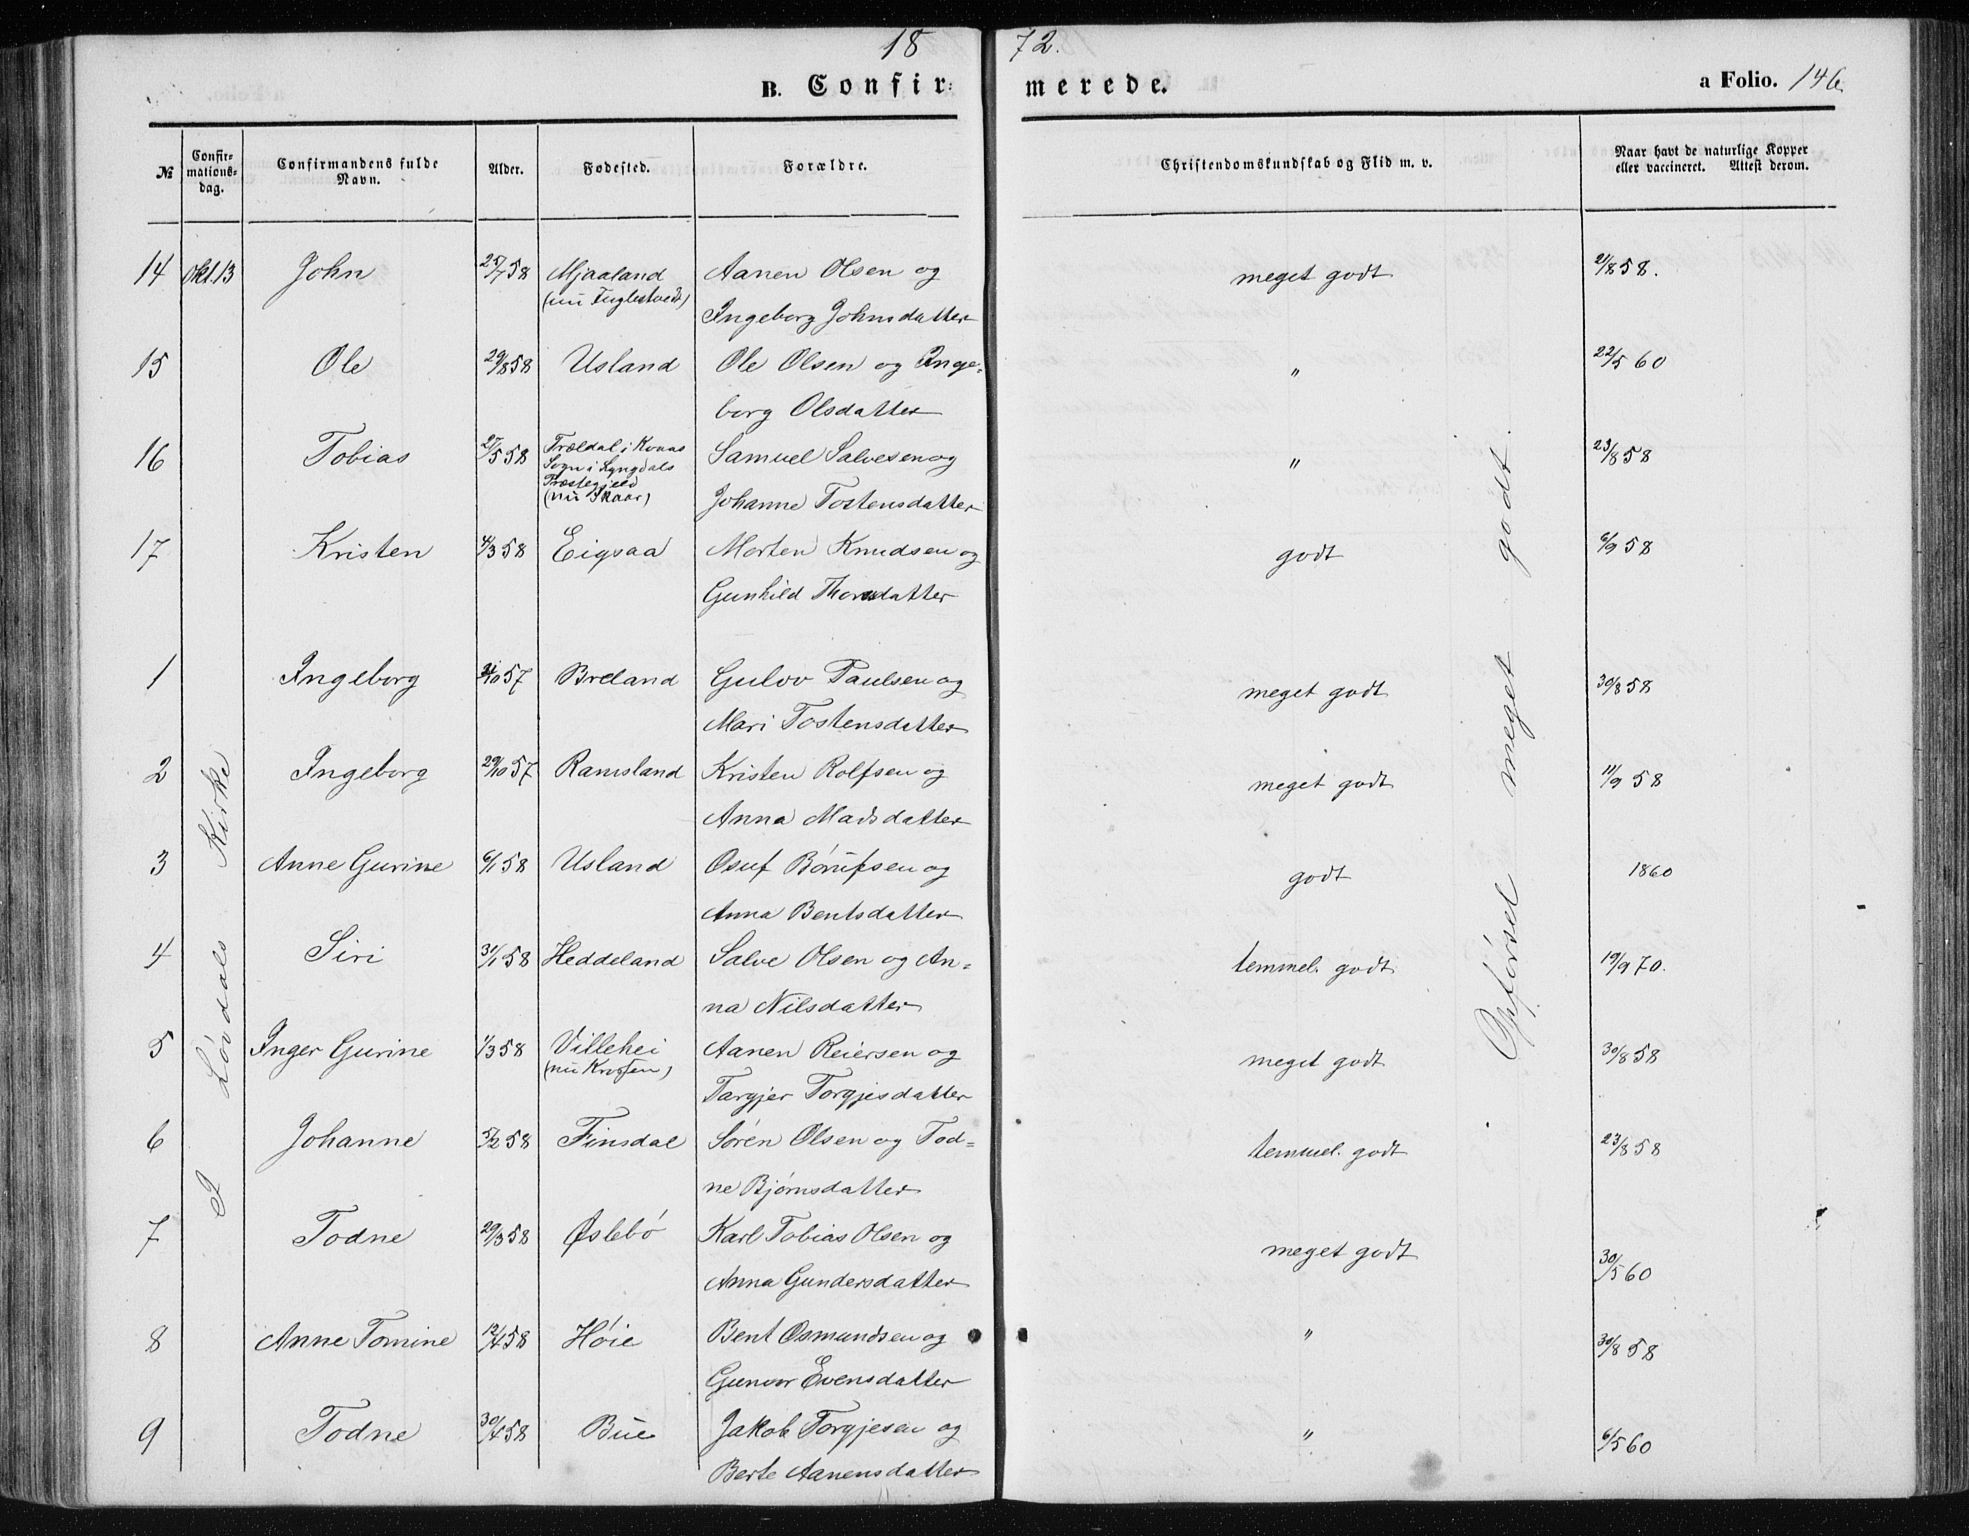 18 72.
B. Confir: merede. a Folio. 146.
№ Confir-mations-dag. Confirmandens fulde Navn. Alder. Fødested. Forældre. Christendomskundskab og Flid m. v. Naar havt de naturlige Kopper eller vaccineret. Attest derom.
14 Okt. 13 John 25/7 58 Mjaaland Aanen Olsen og meget godt 21/8 58.
(nu Fuglestvedt) Ingeborg Johnsdatter
15 Ole 29/8 58 Usland Ole Olsen og Inge- " 22/5 60
borg Olsdatter
16 Tobias 27/5 58 Trældal i Kvaas Samuel Salvesen og " 23/8 58
Sogn i Lyngdals
Præstegjeld
(nu Skaar) Johanne Tostensdatter
17 Kristen 4/3 58 Eigsaa Morten Knudsen og godt 6/9 58
Gunhild Thorsdatter
1 Ingeborg /10 57 Breland Gulov Paulsen og meget godt 30/8 58
Mari Tostensdatter
2 Ingeborg 29/10 57 Ramsland Kristen Rolfsen og meget godt 11/9 58
Anna Madsdatter
3 Anne Gurine 6/1 58 Usland Osuf Børufsen og godt 1860
Anna Bentsdatter
4 Siri 31/1 58 Heddeland Salve Olsen og An- temmel. godt 19/9 70.
na Nilsdatter
5 Inger Gurine 1/3 58 Villehei Aanen Reiersen og meget godt 30/8 58
(nu Krossen) Targjer Torgjesdatter
6 Johanne 5/2 58 Finsdal Søren Olsen og Tod- temmel. godt 23/8 58
ne Bjørnsdatter
7 Todne 29/3 58 Øslebø Karl Tobias Olsen og meget godt 30/5 60
Anna Gundersdatter
8 Anne Tomine 12/4 58 Høie Bent Osmundsen og " 30/8 58
Gunvor Evensdatter
9 Todne 30/4 58 Bue Jakob Torgjesen og " 6/5 60
Berte Aanensdatter
I Løvdals Kirke
Opførsel meget godt.